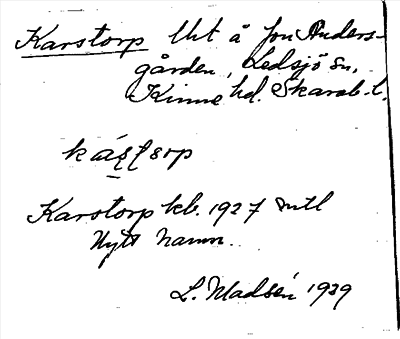 Karstorp Uht å Jon Anders-
gården, Ledsjö sn,
Kinne hd. Skarab. l.
Karstorp kb. 1927 mtl
Nytt namn.
L. Madsén 1939